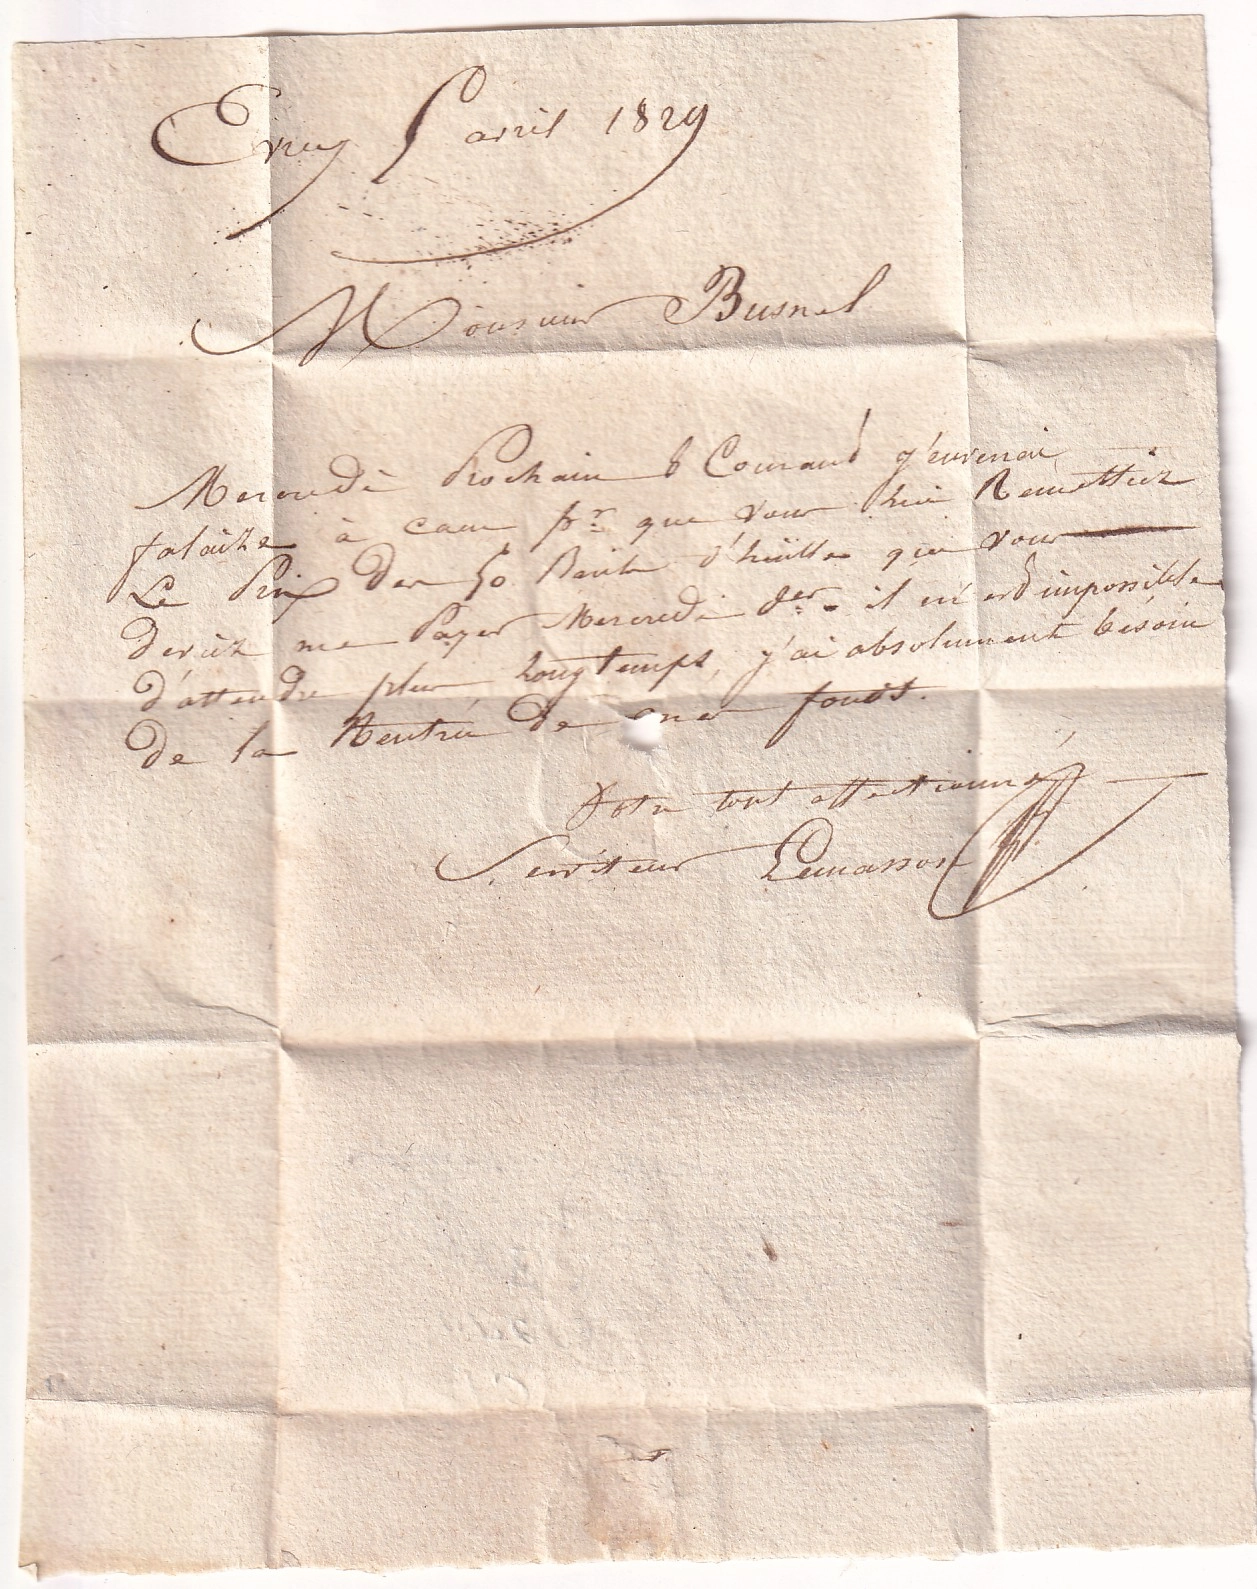 Crecy 5 avril 1829
Monsieur Busnel
Mercredi Prochain 8 Courant j'enverrai
falaize à caen pr. que vous lui Remettiez
Le Prix des 50 d'huille que vous
deviez me Payer Mercredi der. il m'est impossible
d'attendre plus longtemps, j'ai absolument bésoin
de la Rentrée de mes fonds.
Votre tout affectionné
Serviteur Lemasson